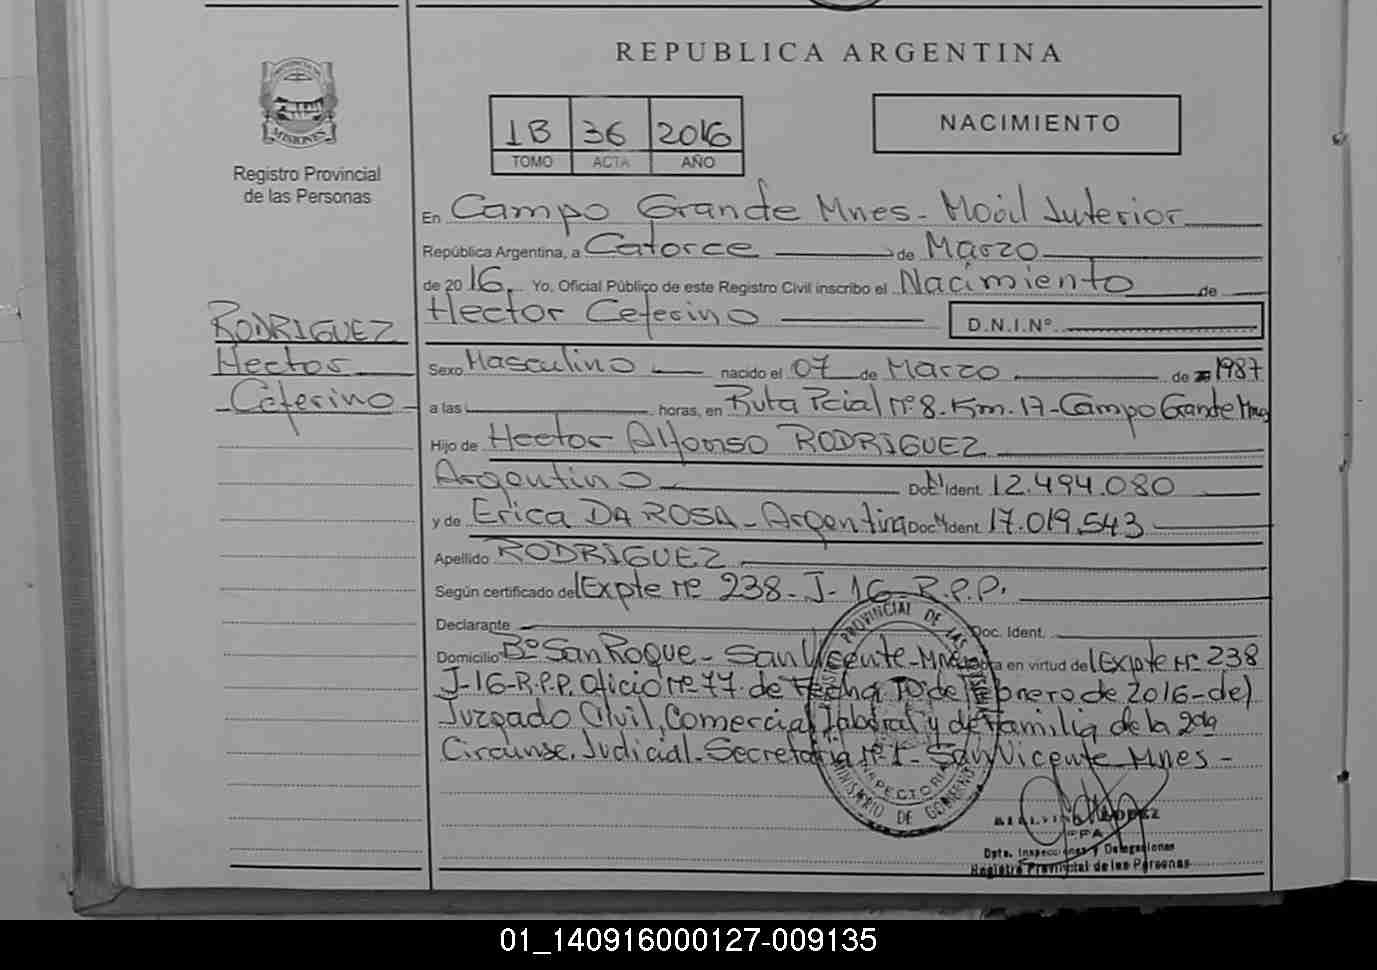 REPUBLICA ARGENTINA
MISIONES
Registro Provincial
de las Personas
1B 36 2016
TOMO ACTA AÑO
NACIMIENTO
En Campo Grande Mnes - Movil Interior
República Argentina, a Catorce de Marzo
de 2016. Yo, Oficial Público de este Registro Civil inscribo el Nacimiento de
Hector Ceferino D.N.I.Nº
RODRIGUEZ
Hector
Ceferino
Sexo Masculino nacido el 07 de Marzo de 1987
a las horas, en Ruta Pcial Nº 8. Km. 17 - Campo Grande Mnes
Hijo de Hector Alfonso RODRIGUEZ
Argentino Doc. Ident. 12.494.080
y de Erica DA ROSA - Argentina Doc. Ident. 17.019.543
Apellido RODRIGUEZ
Según certificado del Expte Nº 238 - J - 16 - R.P.P.
Declarante Doc. Ident.
Domicilio Bº San Roque - San Vicente - Mnes Obra en virtud del Expte Nº 238
J-16-R.P.P. Oficio Nº 77 de Fecha 10 de Febrero de 2016 - del
Juzgado Civil, Comercial, Laboral y de Familia de la 2da
Circunsc. Judicial - Secretaria Nº 1 - San Vicente Mnes -
PROVINCIAL DE LAS
MINISTERIO DE GOBIERNO
LOPEZ
Dpto. Inspecciones y Delegaciones
Registro Provincial de las Personas
01_140916000127-009135